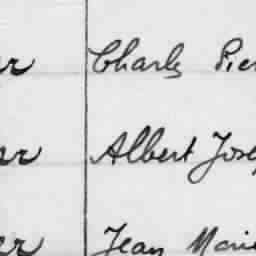 er Charly Pier
er Albert Jose
er Jean Marie